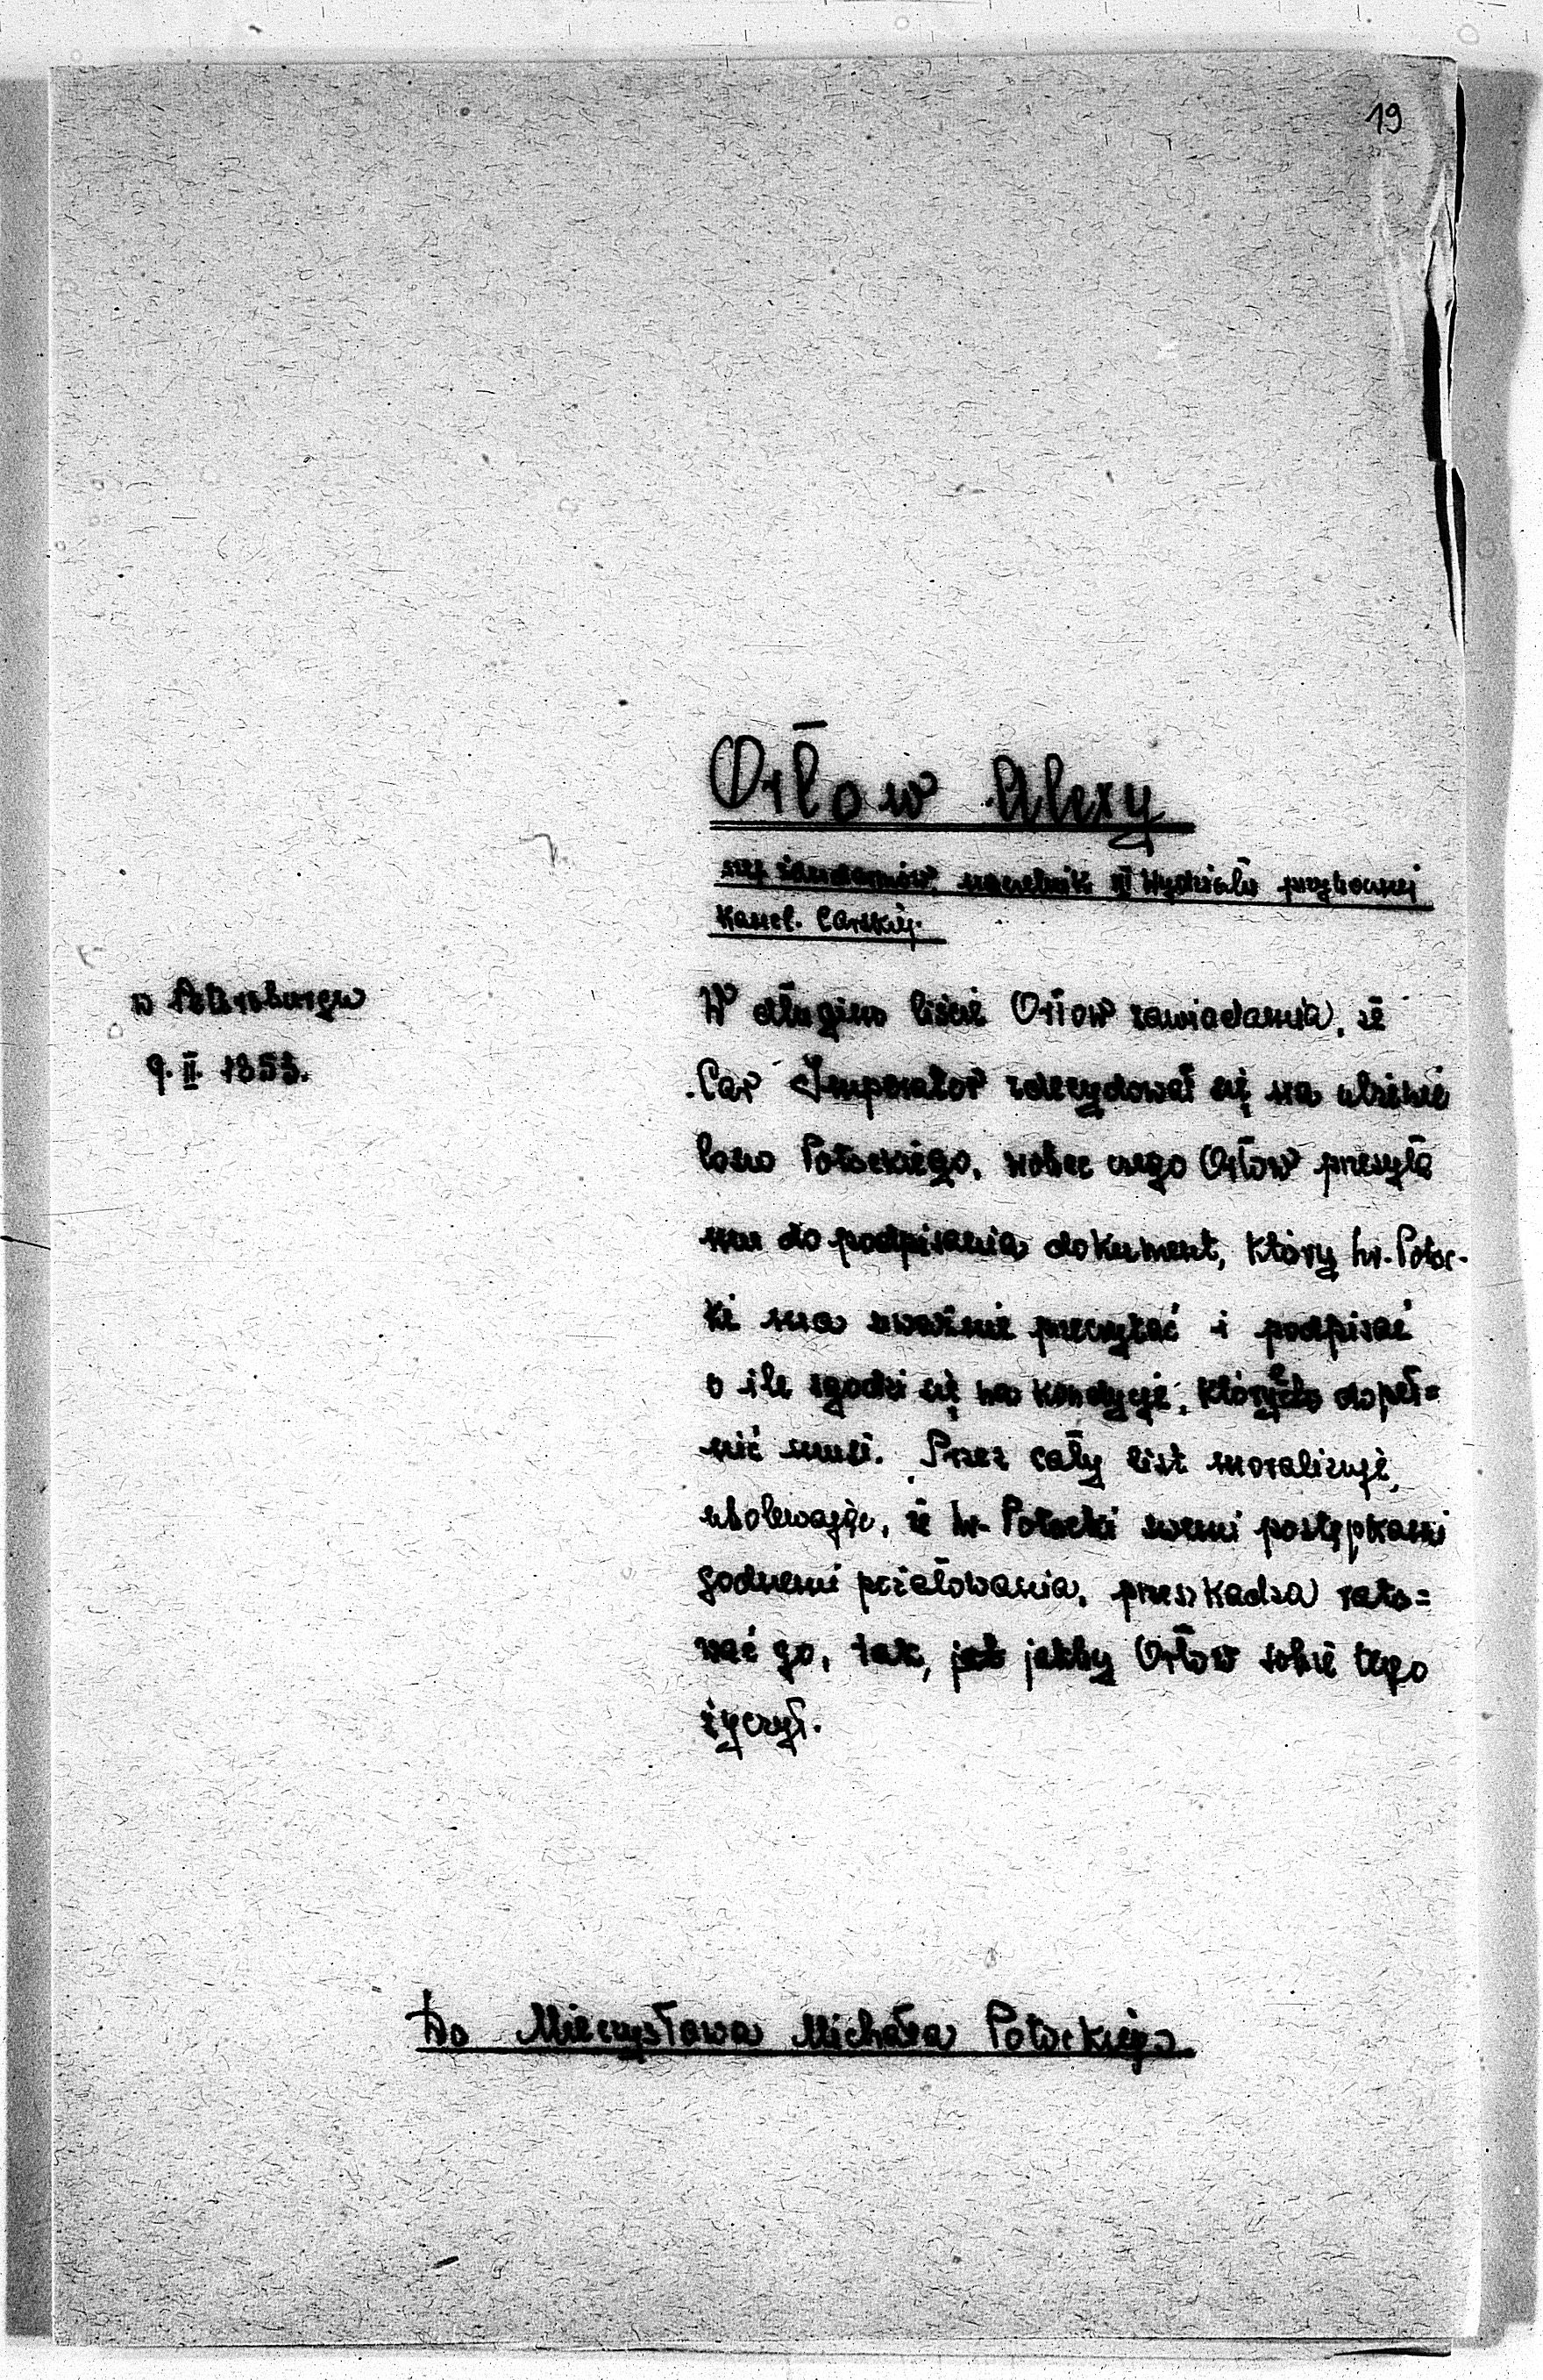 19
Orłow Alexy
szef żandarmów, naczelnik III Wydziału przybocznej
Kancel. Carskiej.
w Petersburgu
9. II. 1853.
W długim liście Orłow zawiadamia, że
Car Imperator zdecydował się na ulżenie
losu Potockiego, wobec czego Orłow przesyła
mu do podpisania dokument, który hr. Potoc-
ki ma uważnie przeczytać i podpisać
o ile zgodzi się na kondycje, które dopeł=
nić musi. Przez cały list moralizuje,
ubolewając, że hr. Potocki swemi postępkami
godnemi pożałowania, przeszkadza rato=
wać go, tak, jakby Orłow sobie tego
życzył.
Do Mieczysława Michała Potockiego.